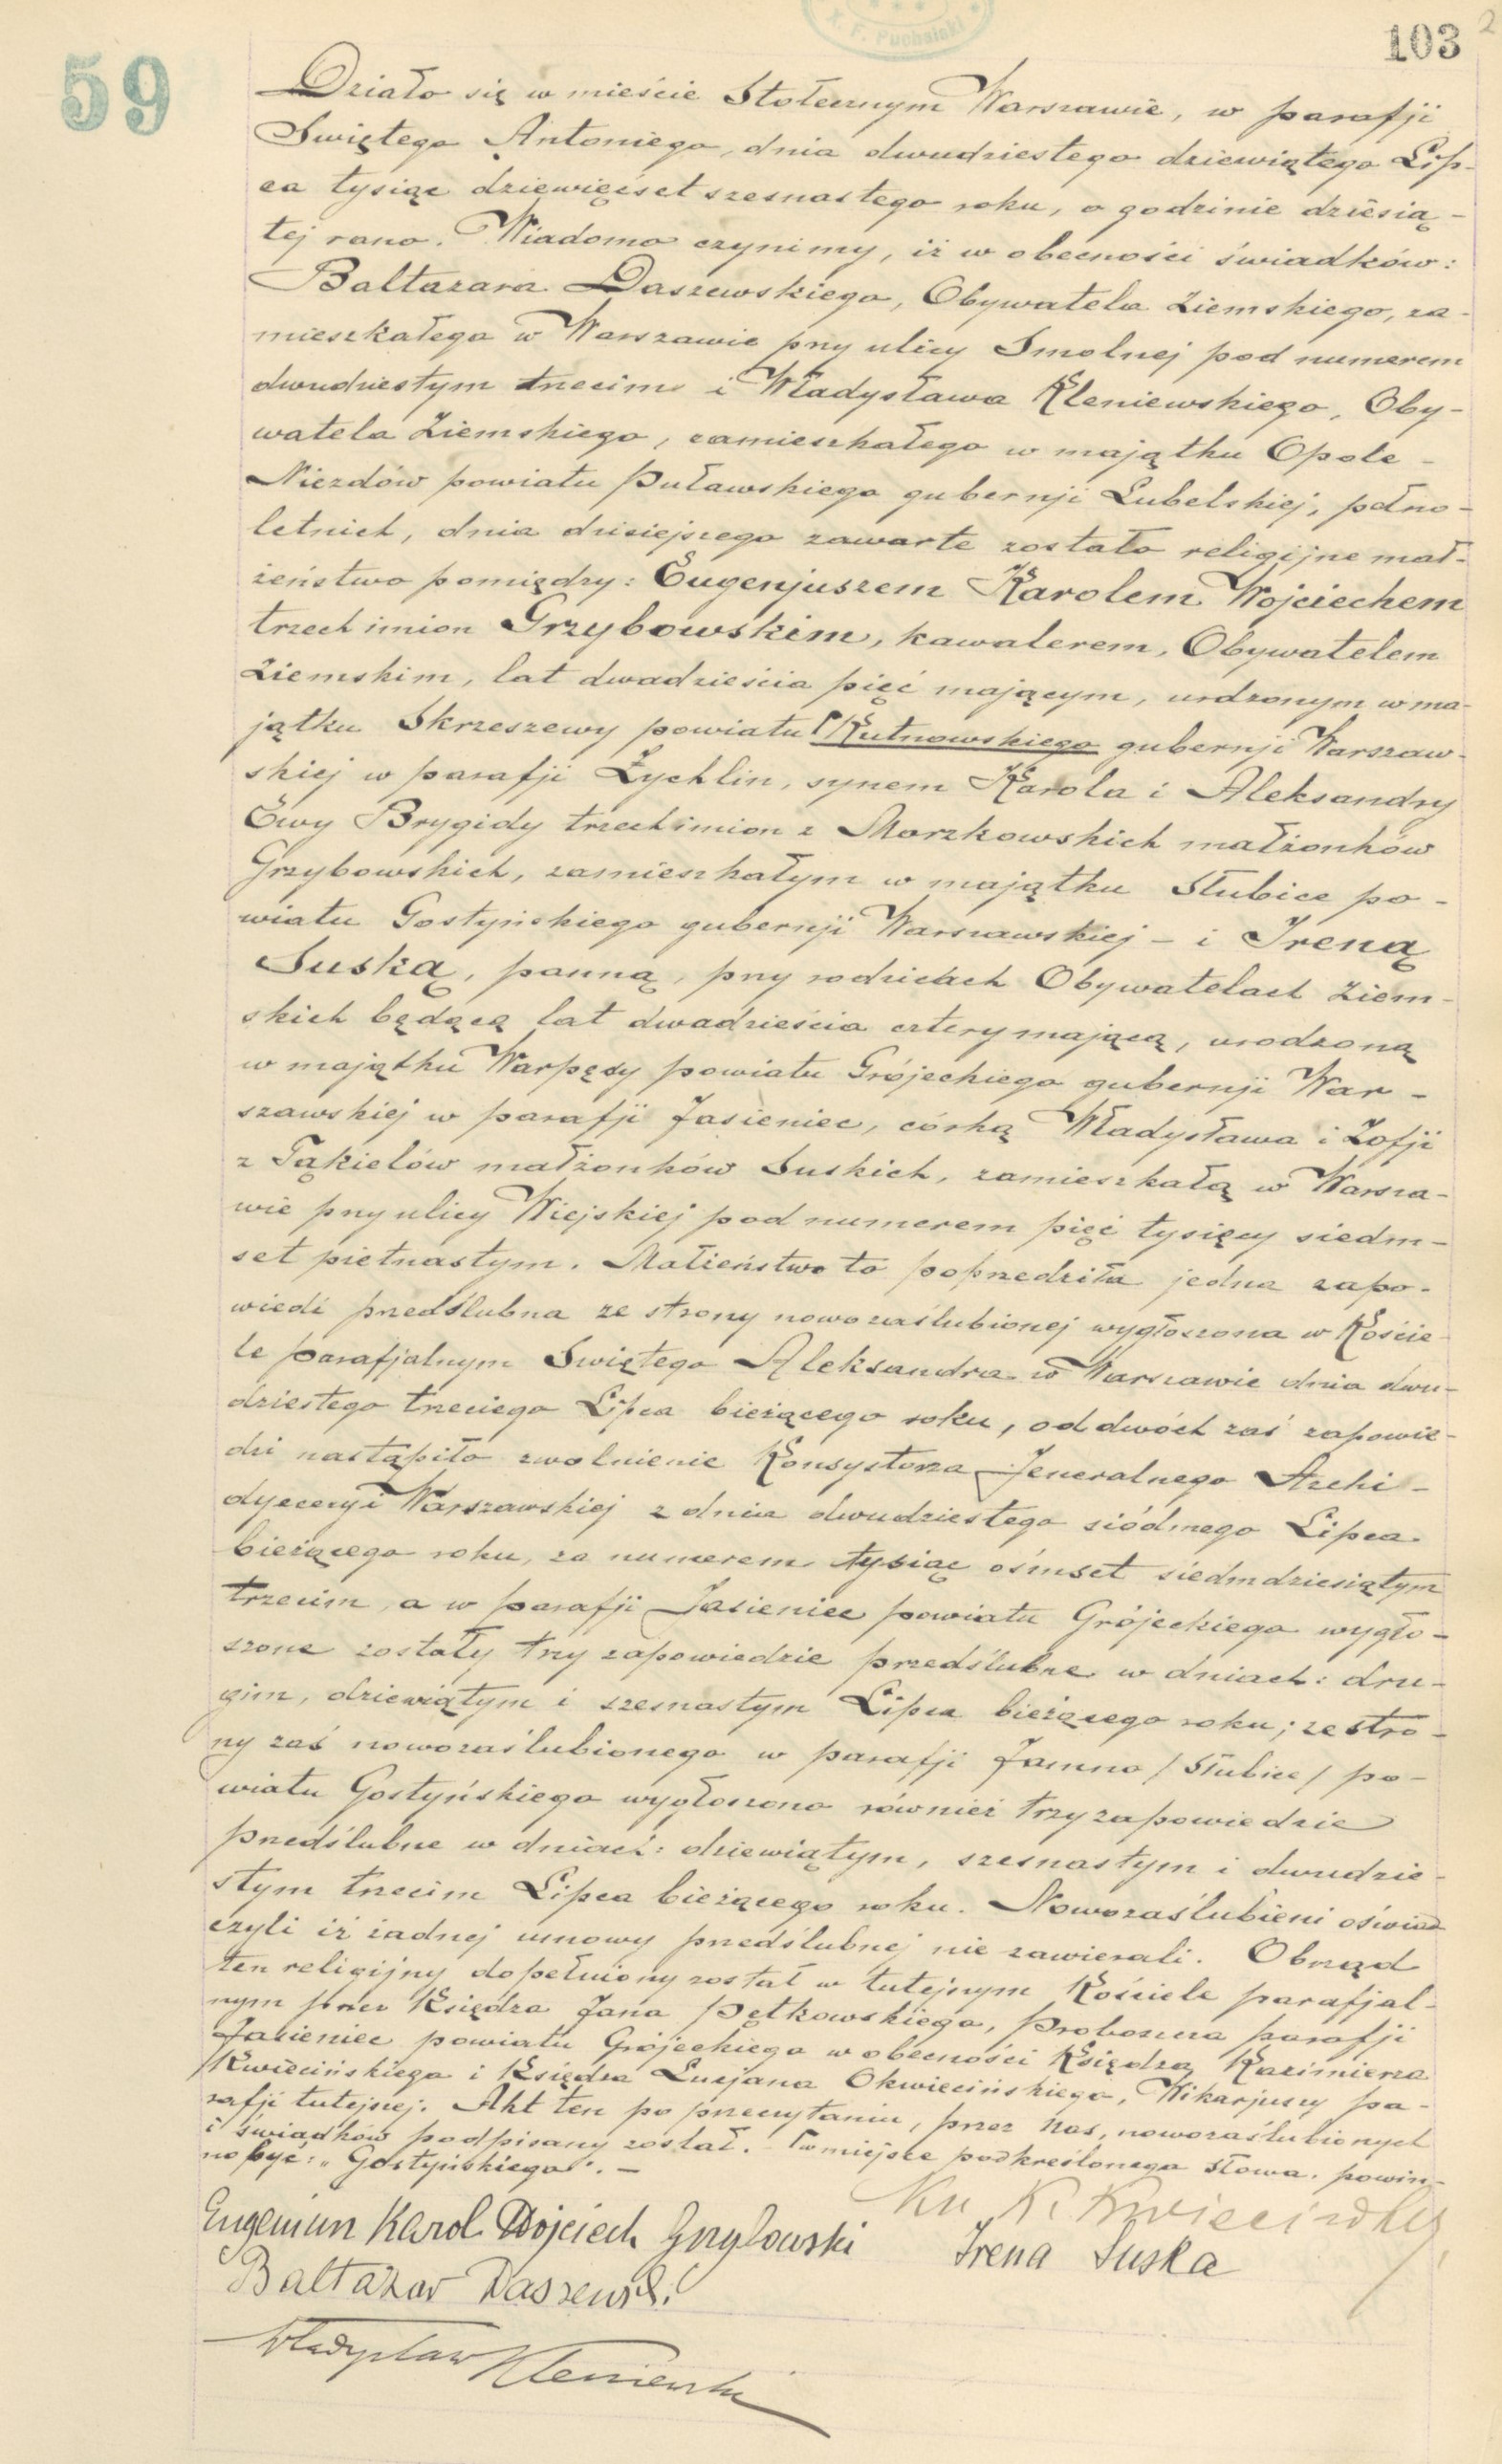 X. F. Puchalski
103
2
59
Działo się w mieście Stołecznym Warszawie, w parafji
Swiętego Antoniego, dnia dwudziestego dziewiątego Lip-
ca tysiąc dziewięćset szesnastego roku, o godzinie dziesią-
tej rano. Wiadomo czynimy, iż w obecności świadków:
Baltazara Daszewskiego, Obywatela Ziemskiego, za-
mieszkałego w Warszawie przy ulicy Smolnej pod numerem
dwudziestym trzecim i Władysława Kleniewskiego, Oby-
watela Ziemskiego, zamieszkałego w majątku Opole -
Niezdów powiatu Puławskiego gubernji Lubelskiej, pełno-
letnich, dnia dzisiejszego zawarte zostało religijne mał-
żeństwo pomiędzy: Eugenjuszem Karolem Wojciechem
trzech imion Grzybowskim, kawalerem, Obywatelem
Ziemskim, lat dwadzieścia pięć mającym, urodzonym w ma-
jątku Skrzeszewy powiatu Kutnowskiego gubernji Warszaw-
skiej w parafji Żychlin, synem Karola i Aleksandry
Ewy Brygidy trzech imion z Morzkowskich małżonków
Grzybowskich, zamieszkałym w majątku Słubice po-
wiatu Gostyńskiego gubernji Warszawskiej - i Ireną
Suską, panną, przy rodzicach Obywatelach Ziem-
skich będącą lat dwadzieścia cztery mającą, urodzoną
w majątku Warpęsy powiatu Grójeckiego gubernji War-
szawskiej w parafji Jasieniec, córką Władysława i Zofji
z Tąkielów małżonków Suskich, zamieszkałą w Warsza-
wie przy ulicy Wiejskiej pod numerem pięć tysięcy siedm-
set piętnastym. Małżeństwo to poprzedziła jedna zapo-
wiedź przedślubna ze strony nowozaślubionej wygłoszona w Koście-
le parafjalnym Swiętego Aleksandra w Warszawie dnia dwu-
dziestego trzeciego Lipca bieżącego roku, od dwóch zaś zapowie-
dzi nastąpiło zwolnienie Konsystorza Jeneralnego Archi-
dyecezyi Warszawskiej z dnia dwudziestego siódmego Lipca
bieżącego roku, za numerem tysiąc ośmset siedmdziesiątym
trzecim, a w parafji Jasieniec powiatu Grójeckiego wygło-
szone zostały trzy zapowiedzie przedślubne w dniach: dru-
gim, dziewiątym i szesnastym Lipca bieżącego roku; ze stro-
ny zaś nowozaślubionego w parafji Jamno /Słubice/ po-
wiatu Gostyńskiego wygłoszono również trzy zapowiedzie
przedślubne w dniach: dziewiątym, szesnastym i dwudzie-
stym trzecim Lipca bieżącego roku. Nowozaślubieni oświad-
czyli iż żadnej umowy przedślubnej nie zawierali. Obrzęd
ten religijny dopełniony został w tutejszym Kościele parafjal-
nym przez Księdza Jana Pętkowskiego, Proboszcza parafji
Jasieniec powiatu Grójeckiego w obecności Księdza Kazimierza
Kwiecińskiego i Księdza Lucjana Okwiecińskiego, Wikarjuszy pa-
rafji tutejszej. Akt ten po przeczytaniu, przez Nas, nowozaślubionych
i świadków podpisany został. - W miejsce podkreślonego słowa, powin-
no być: „Gostyńskiego". -
Ks. K. Kwieciński
Eugeniusz Karol Wojciech Grzybowski
Irena Suska
Baltazar Daszewski
Władysław Kleniewski